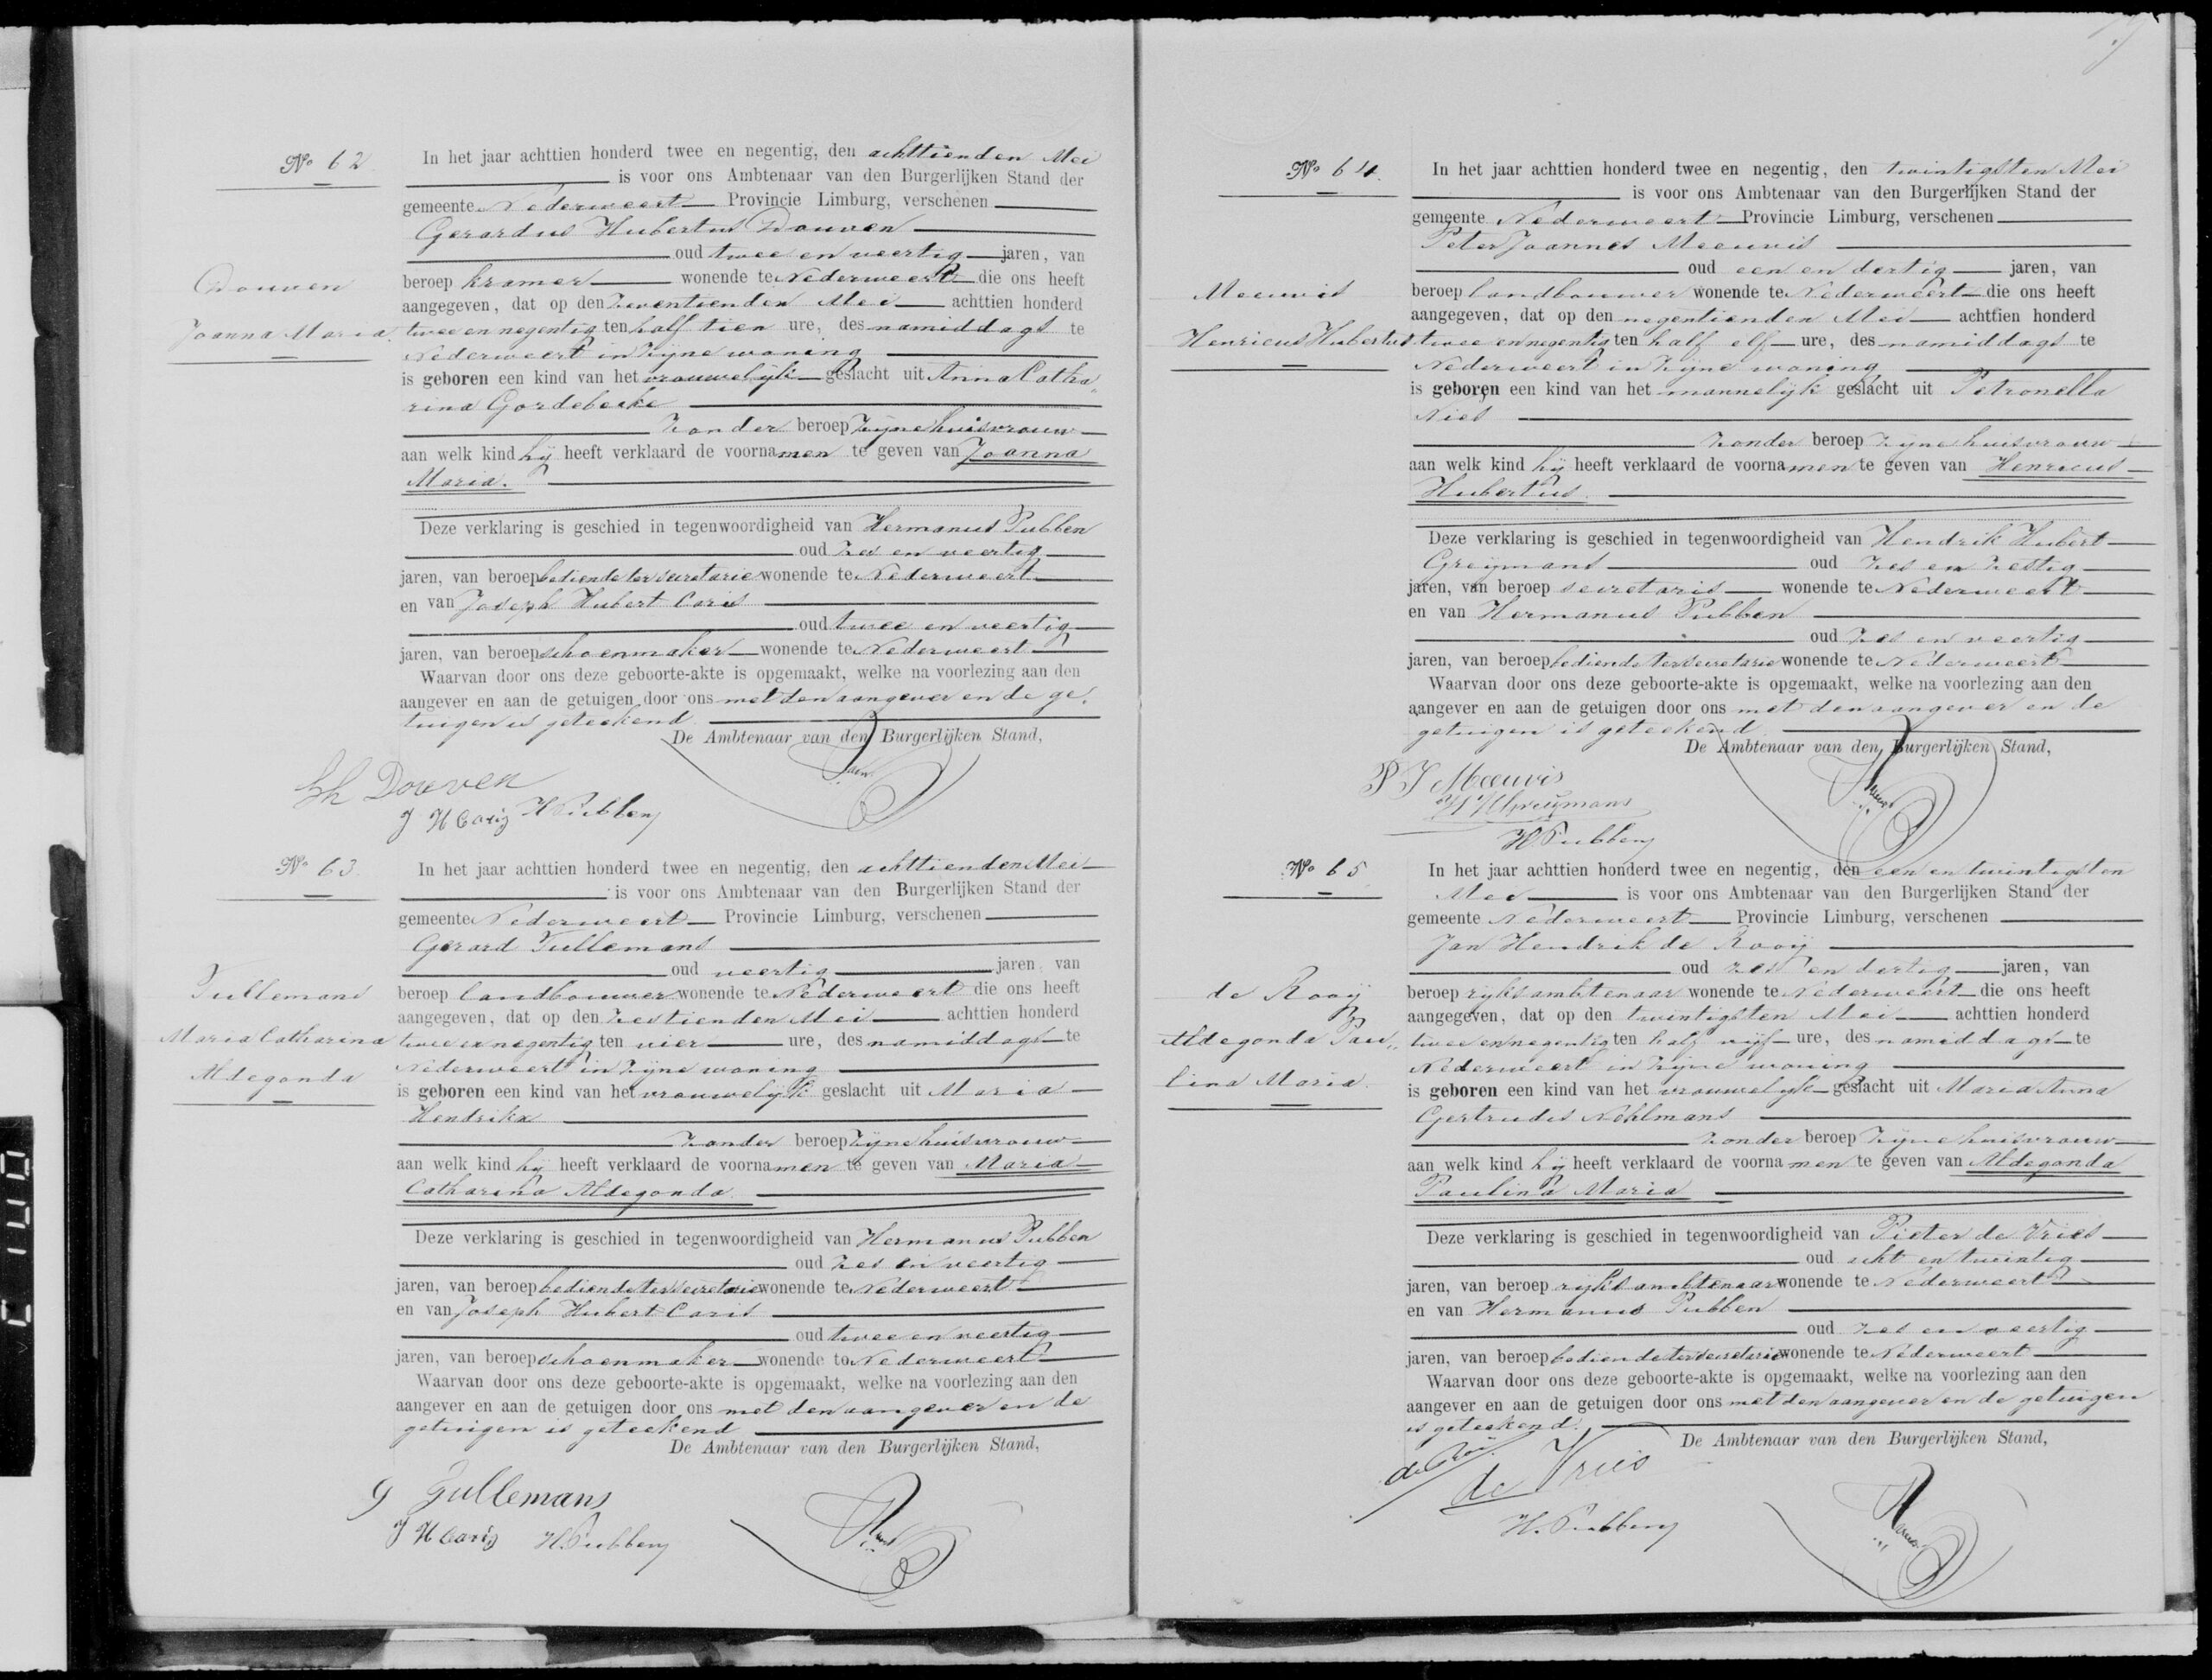 No 62
In het jaar achttien honderd twee en negentig, den achttienden Mei
is voor ons Ambtenaar van den Burgerlijken Stand der
gemeente Nederweert Provincie Limburg, verschenen
Gerardus Hubertus Douven
oud twee en veertig jaren, van
Douven
beroep kramer wonende te Nederweert die ons heeft
aangegeven, dat op den zeventienden Mei achttien honderd
Joanna Maria.
twee en negentig ten half tien ure, des namiddags te
Nederweert in zijne woning
is geboren een kind van het vrouwelijk geslacht uit Anna Catha„
rina Gordebeeke
zonder beroep zijne huisvrouw
aan welk kind hij heeft verklaard de voornamen te geven van Joanna
Maria.
Deze verklaring is geschied in tegenwoordigheid van Hermanus Pubben
oud zes en veertig
jaren, van beroep bediende ter secretarie wonende te Nederweert
en van Joseph Hubert Caris
oud twee en veertig
jaren, van beroep schoenmaker wonende te Nederweert
Waarvan door ons deze geboorte-akte is opgemaakt, welke na voorlezing aan den
aangever en aan de getuigen door ons met den aangever en de ge„
tuigen is geteekend
De Ambtenaar van den Burgerlijken Stand,
Gh Douven
J H Caris H Pubben
No 63.
In het jaar achttien honderd twee en negentig, den achttienden Mei
is voor ons Ambtenaar van den Burgerlijken Stand der
gemeente Nederweert Provincie Limburg, verschenen
Gerard Tullemans
oud veertig jaren, van
Tullemans
beroep landbouwer wonende te Nederweert die ons heeft
aangegeven, dat op den zestienden Mei achttien honderd
Maria Catharina
twee en negentig ten vier ure, des namiddags te
Aldegonda
Nederweert in zijne woning
is geboren een kind van het vrouwelijk geslacht uit Maria
Hendrikx
zonder beroep zijne huisvrouw
aan welk kind hij heeft verklaard de voornamen te geven van Maria
Catharina Aldegonda.
Deze verklaring is geschied in tegenwoordigheid van Hermanus Pubben
oud zes en veertig
jaren, van beroep bediende ter secretarie wonende te Nederweert
en van Joseph Hubert Caris
oud twee en veertig
jaren, van beroep schoenmaker wonende te Nederweert
Waarvan door ons deze geboorte-akte is opgemaakt, welke na voorlezing aan den
aangever en aan de getuigen door ons met den aangever en de
getuigen is geteekend
De Ambtenaar van den Burgerlijken Stand,
G Tullemans
J H Caris H. Pubben
No 64.
In het jaar achttien honderd twee en negentig, den twintigsten Mei
is voor ons Ambtenaar van den Burgerlijken Stand der
gemeente Nederweert Provincie Limburg, verschenen
Peter Joannes Meeuvis
oud een en dertig jaren, van
Meeuvis
beroep landbouwer wonende te Nederweert die ons heeft
aangegeven, dat op den negentienden Mei achttien honderd
Henricus Hubertus
twee en negentig ten half elf ure, des namiddags te
Nederweert in zijne woning
is geboren een kind van het mannelijk geslacht uit Petronella
Nies
zonder beroep zijne huisvrouw
aan welk kind hij heeft verklaard de voornamen te geven van Henricus
Hubertus.
Deze verklaring is geschied in tegenwoordigheid van Hendrik Hubert
Greijmans oud zes en zestig
jaren, van beroep secretaris wonende te Nederweert
en van Hermanus Pubben
oud zes en veertig
jaren, van beroep bediende ter secretarie wonende te Nederweert
Waarvan door ons deze geboorte-akte is opgemaakt, welke na voorlezing aan den
aangever en aan de getuigen door ons met den aangever en de
getuigen is geteekend
De Ambtenaar van den Burgerlijken Stand,
P J Meeuvis
H H Greijmans
H Pubben
No 65
In het jaar achttien honderd twee en negentig, den een en twintigsten
Mei is voor ons Ambtenaar van den Burgerlijken Stand der
gemeente Nederweert Provincie Limburg, verschenen
Jan Hendrik de Rooij
oud zes en dertig jaren, van
de Rooij
beroep rijksambtenaar wonende te Nederweert die ons heeft
aangegeven, dat op den twintigsten Mei achttien honderd
Aldegonda Pau„
twee en negentig ten half vijf ure, des namiddags te
Nederweert in zijne woning
lina Maria.
is geboren een kind van het vrouwelijk geslacht uit Maria Anna
Gertrudes Nehlmans
zonder beroep zijne huisvrouw
aan welk kind hij heeft verklaard de voornamen te geven van Aldegonda
Paulina Maria
Deze verklaring is geschied in tegenwoordigheid van Pieter de Vries
oud acht en twintig
jaren, van beroep rijks ambtenaar wonende te Nederweert
en van Hermanus Pubben
oud zes en veertig
jaren, van beroep bediende ter secretarie wonende te Nederweert
Waarvan door ons deze geboorte-akte is opgemaakt, welke na voorlezing aan den
aangever en aan de getuigen door ons met den aangever en de getuigen
is geteekend.
De Ambtenaar van den Burgerlijken Stand,
de Vries
H. Pubben